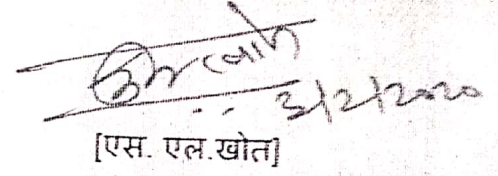 3/2/2020
[एस. एल.खोत]